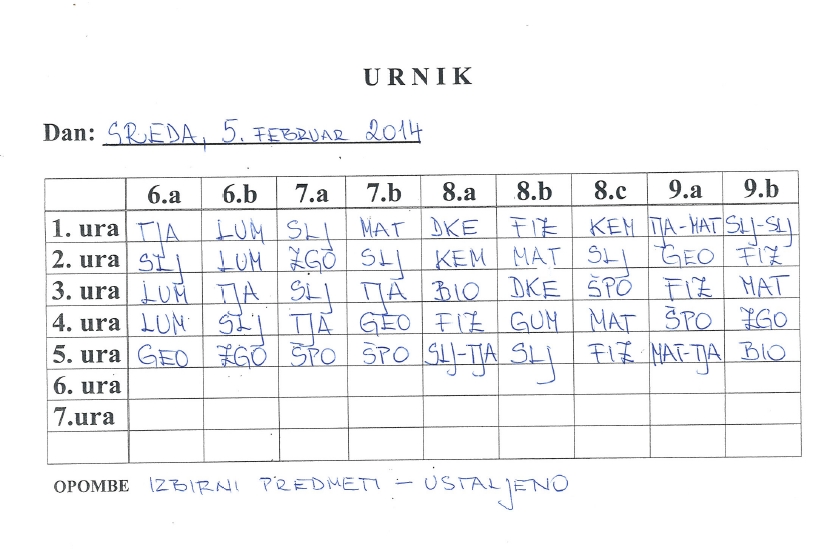 URNIK
Dan: SREDA, 5. FEBRUAR 2014
6.a 6.b 7.a 7.b 8.a 8.b 8.c 9.a 9.b
1. ura TJA LUM SLJ MAT DKE FIZ KEM TJA-MAT SLJ-SLJ
2. ura SLJ LUM ZGO SLJ KEM MAT SLJ GEO FIZ
3. ura LUM TJA SLJ TJA BIO DKE ŠPO FIZ MAT
4. ura LUM SLJ TJA GEO FIZ GUM MAT ŠPO ZGO
5. ura GEO ZGO ŠPO ŠPO SLJ-TJA SLJ FIZ MAT-TJA BIO
6. ura
7.ura
OPOMBE IZBIRNI PREDMETI - USTALJENO